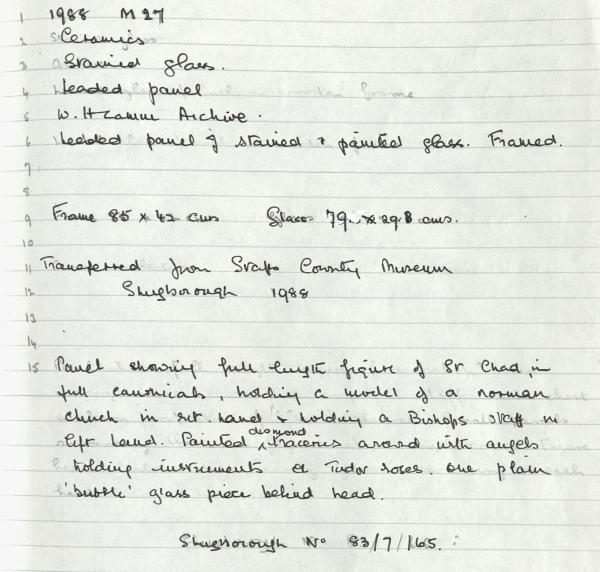 1 1988 M 27
2 Ceramics
3 Stained glass.
4 Leaded panel
5 W. H Lamm Archive.
6 Leaded panel of stained + painted glass. Framed.
7
8
9 Frame 85 x 42 cms Glass 79. x 29.8 cms.
10
11 Transferred from Staffs County Museum
12 Shugborough 1988
13
14
15 Panel showing full length figure of St Chad, in
full canonicals, holding a model of a norman
church in rt. hand & holding a Bishops staff in
left hand. Painted diamond traceries around with angels
holding instruments & Tudor roses. One plain
'bubble' glass piece behind head.
Shugborough No 83/7/165.